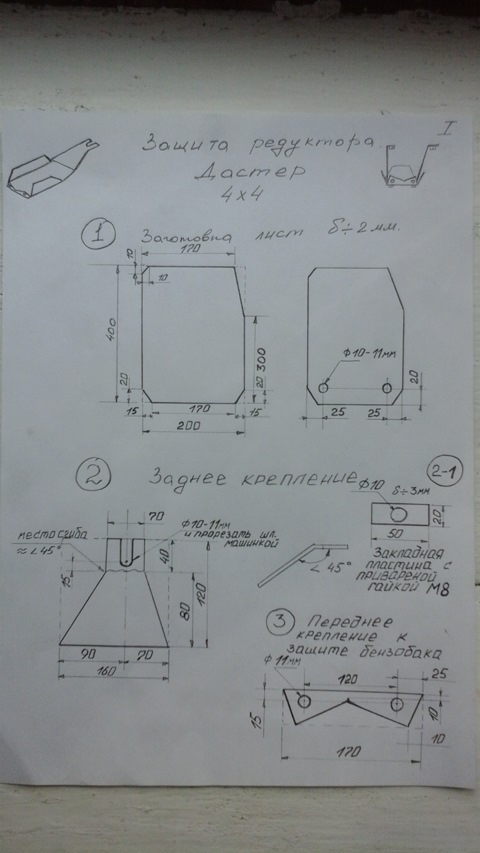 I
Защита редуктора
Дастер
4x4
1
Заготовка лист δ÷2мм.
170
10
10
400
20
15
170
15
200
20
300
Ф10-11мм
20
25
25
2
Заднее крепление
2-1
70
место сгиба
≈∠45°
Ф10-11мм
и прорезать шл.
машинкой
15
40
80
120
90
70
160
∠45°
Ф10
δ÷3мм
20
50
Закладная
пластина с
привареной
гайкой М8
3
Переднее
крепление к
защите бензобака
Ф11мм
120
25
15
10
10
170